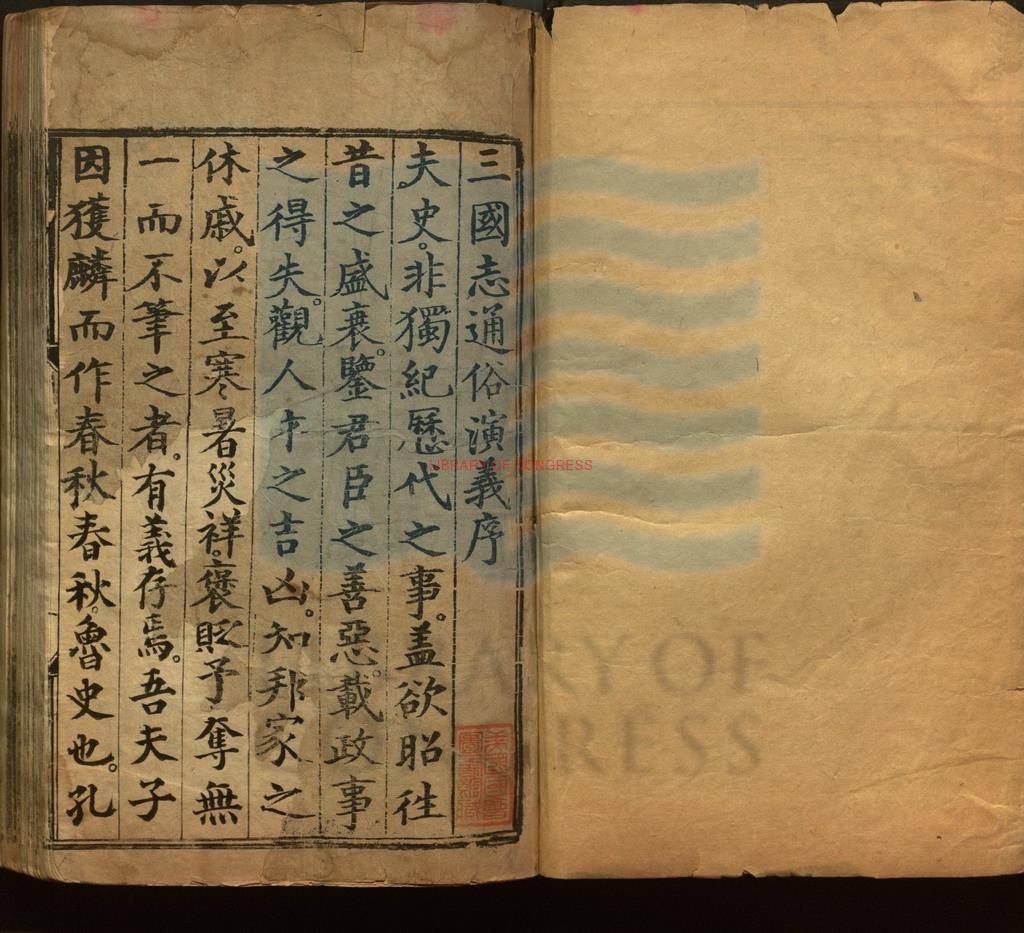 三國志通俗演義序
夫史。非獨紀歷代之事。盖欲昭徃
昔之盛衰。鑒君臣之善惡。載政事
之得失。觀人才之吉凶。知邦家之
休戚。以至寒暑災祥。褒貶予奪無
一而不筆之者。有義存焉。吾夫子
因獲麟而作春秋春秋。魯史也。孔
LIBRARY OF CONGRESS
ARY OF
GRESS